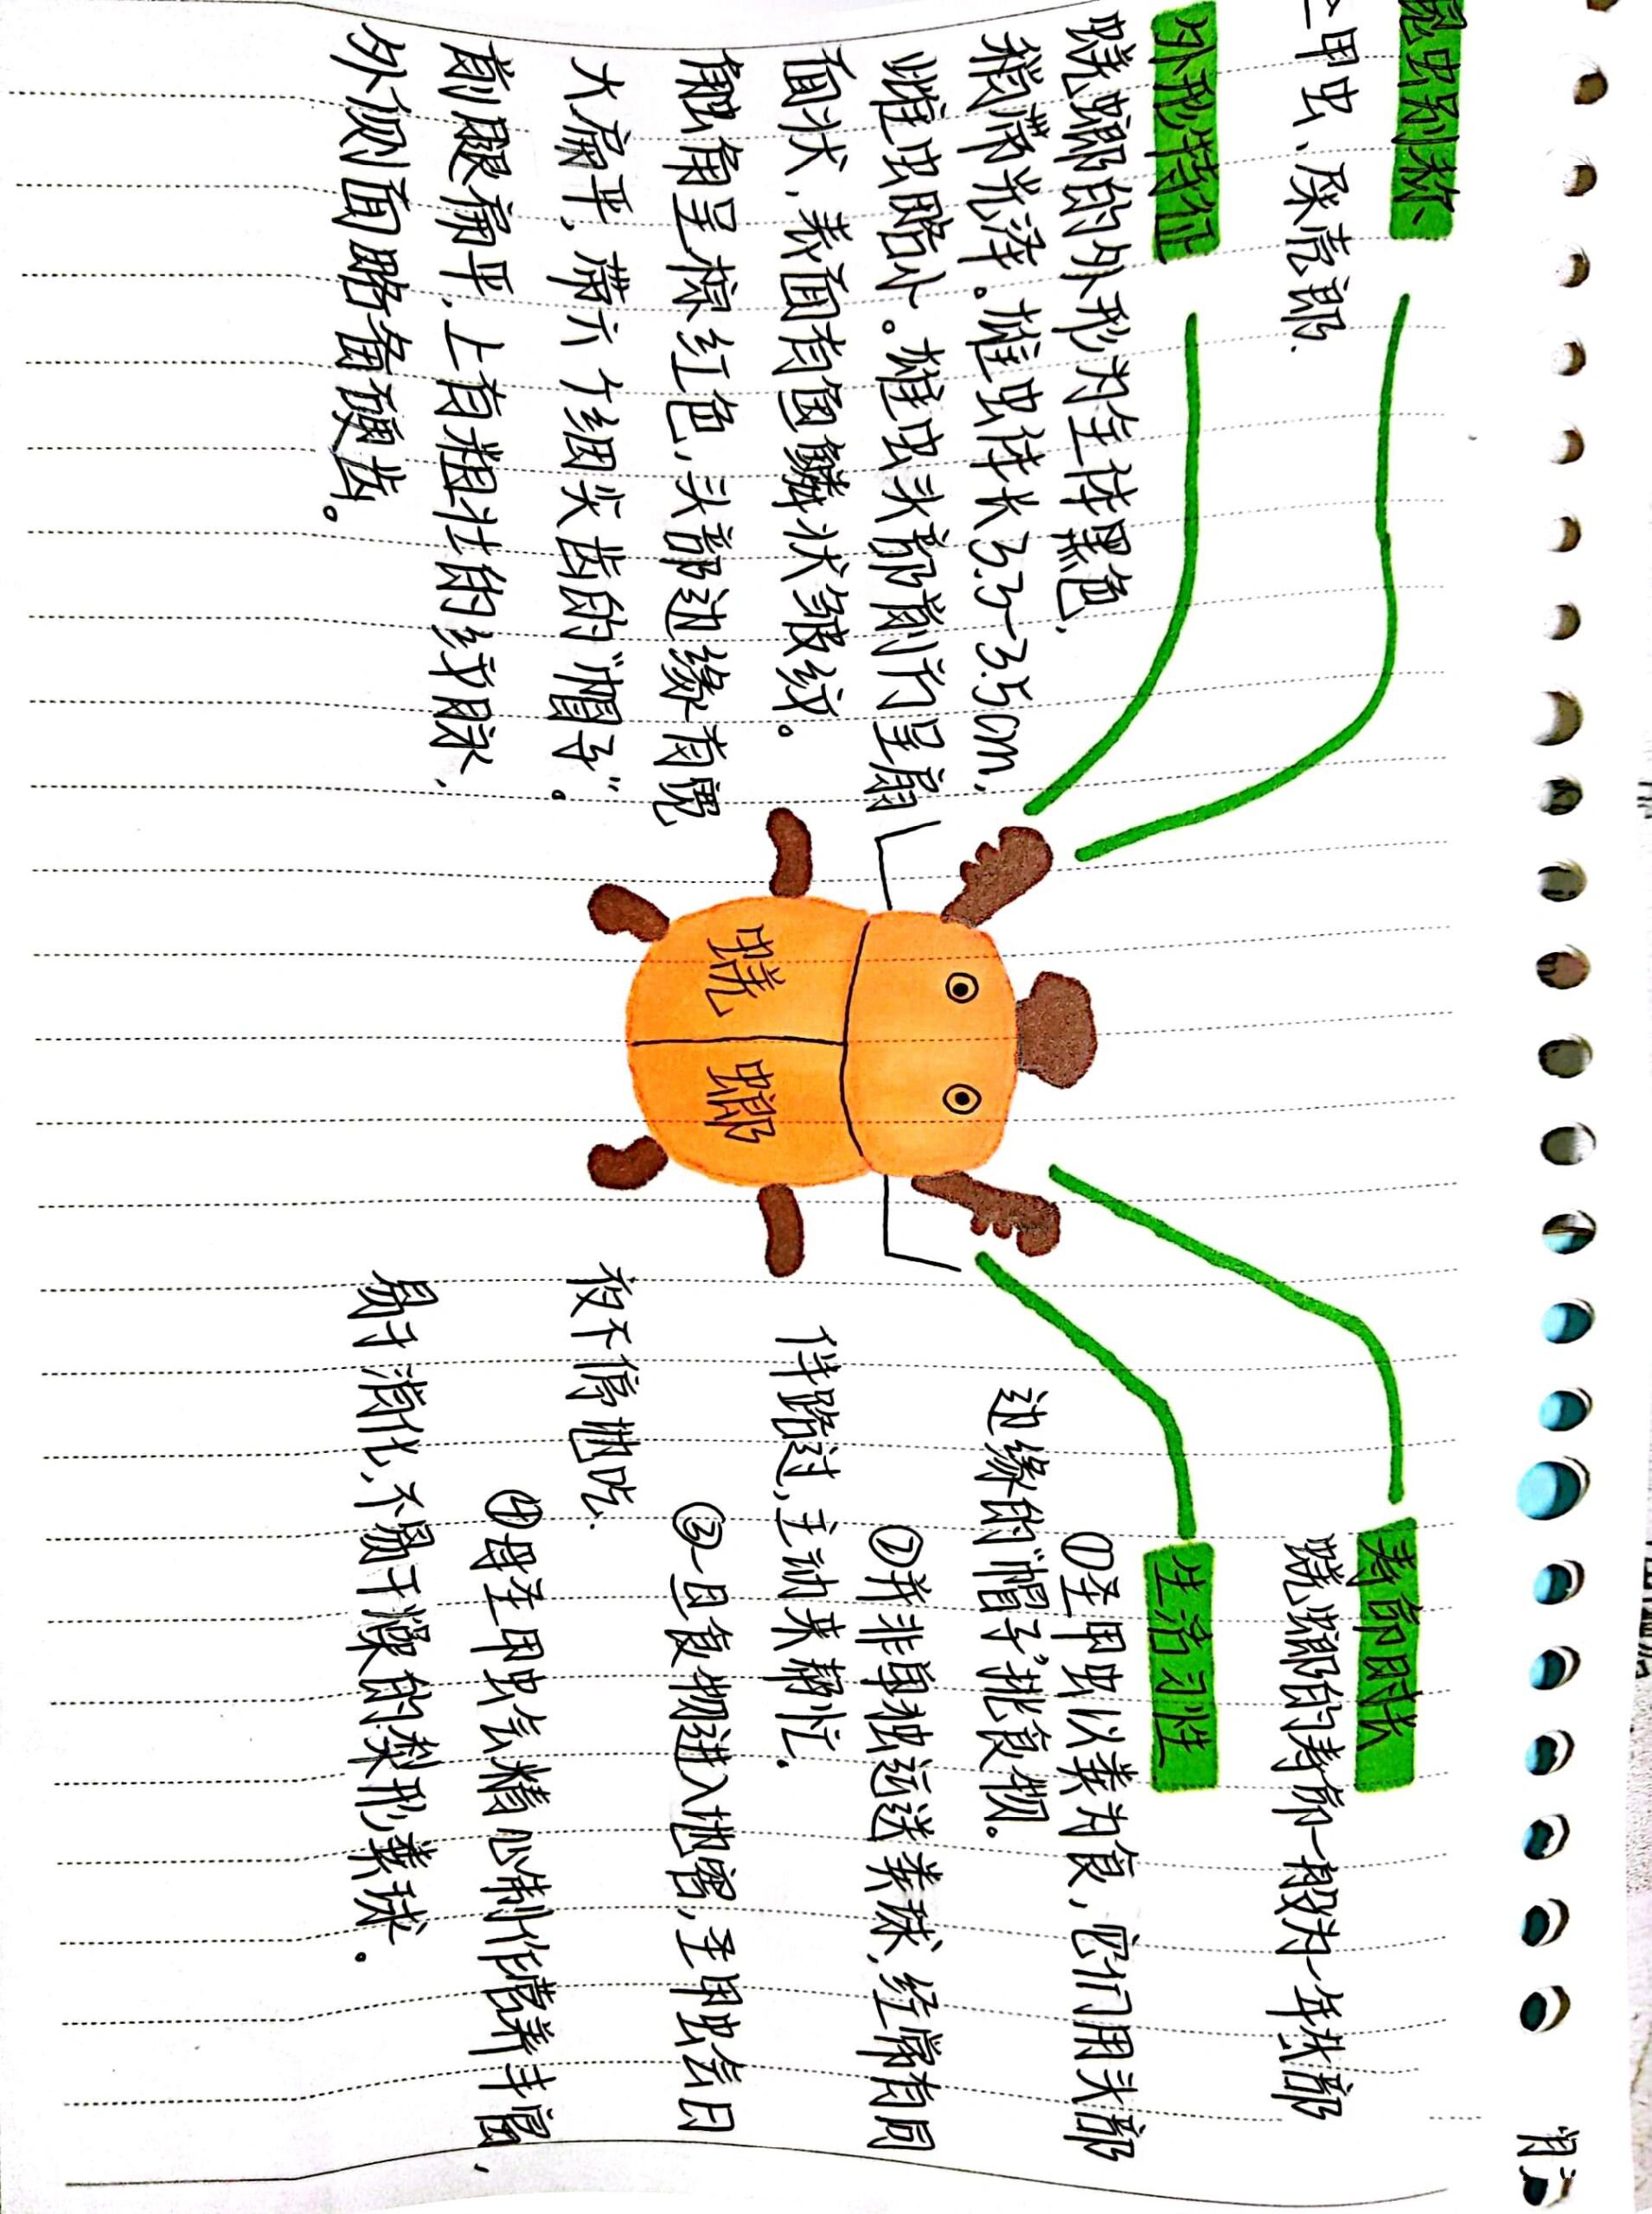 昆虫别称
圣甲虫、屎壳郎.
外形特征
蜣螂的外形为全体黑色,
稍带光泽。雄虫体长3.3~3.5cm,
雌虫略小。雄虫头部前方呈扇
面状,表面有鱼鳞状皱纹。
触角呈棕红色,头部边缘有宽
大扁平,带六个细尖齿的"帽子"。
前腿扁平,上有粗壮的纹脉,
外侧面略备硬齿。
蜣 螂
寿命时长
蜣螂的寿命一般为一年热部
生活习性
①圣甲虫以粪为食,它们用头部
边缘的"帽子"挑食物。
②并非单独运送粪球,经常有同
伴路过,主动来帮忙.
③一旦食物进入地窖,圣甲虫会日
夜不停地吃.
④母圣甲虫会精心制作营养丰富,
易于消化,不易干燥的梨形粪球.